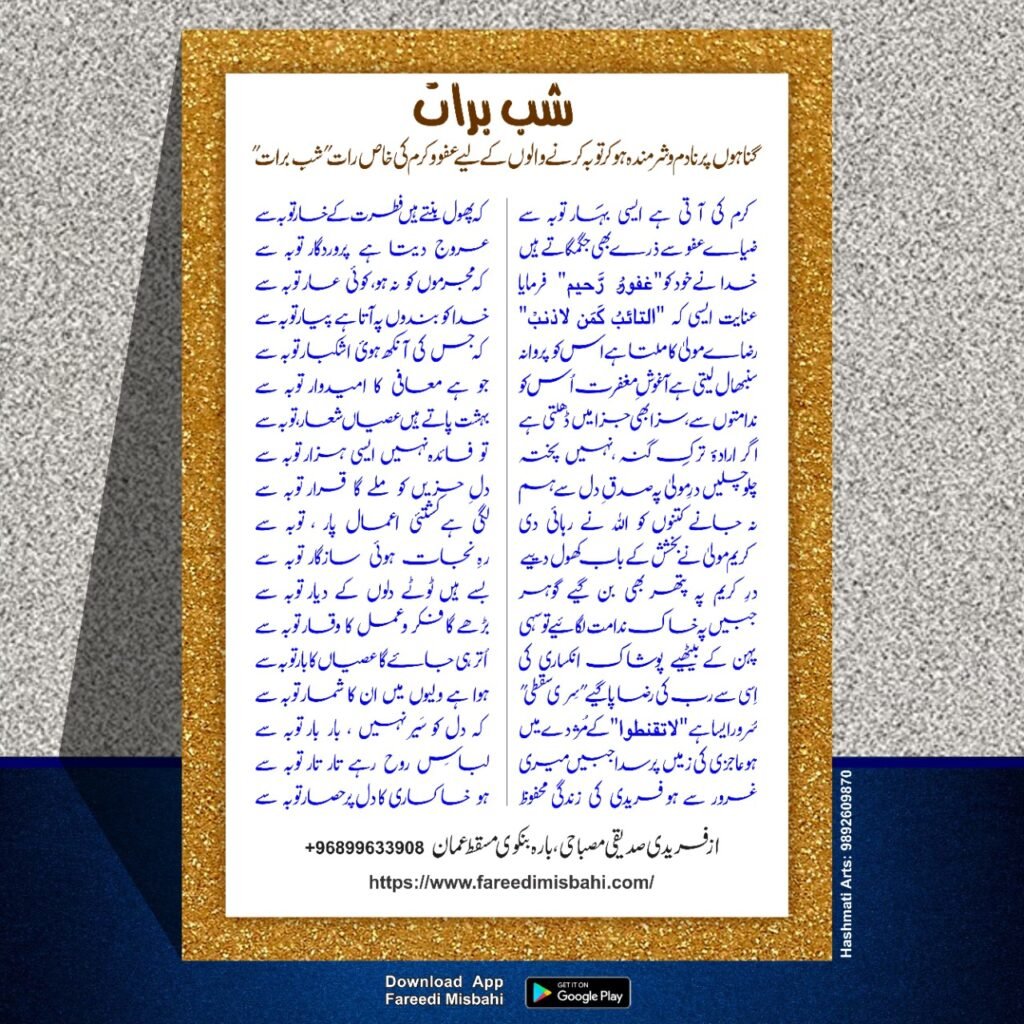 شب برات
گناہوں پر نادم و شرمندہ ہو کر توبہ کرنے والوں کے لیے عفو و کرم کی خاص رات "شب برات"
کرم کی آتی ہے ایسی بہار توبہ سے
کہ پھول بنتے ہیں فطرت کے خار توبہ سے
ضیاے عفو سے ذرے بھی جگمگاتے ہیں
عروج دیتا ہے پروردگار توبہ سے
خدا نے خود کو "غفورٌ رَّحیم" فرمایا
کہ مجرموں کو نہ ہو، کوئی عار توبہ سے
عنایت ایسی کہ "التائبُ کَمَن لاذنبْ"
خدا کو بندوں پہ آتا ہے پیار توبہ سے
رضاے مولیٰ کا ملتا ہے اس کو پروانہ
کہ جس کی آنکھ ہوئ اشکبار توبہ سے
سنبھال لیتی ہے آغوشِ مغفرت اُس کو
جو ہے معافی کا امیدوار توبہ سے
ندامتوں سے، سزا بھی جزا میں ڈھلتی ہے
بہشت پاتے ہیں عصیاں شعار، توبہ سے
اگر ارادۂ ترکِ گنہ، نہیں پختہ
تو فائدہ نہیں ایسی ہزار توبہ سے
چلو چلیں درِ مولیٰ پہ صدقِ دل سے ہم
دلِ حزیں کو ملے گا قرار توبہ سے
نہ جانے کتنوں کو اللہ نے رہائی دی
لگی ہے کشتئ اعمال پار ، توبہ سے
کریم مولیٰ نے بخشش کے باب کھول دیے
رہِ نجات ہوئی سازگار توبہ سے
درِ کریم پہ پتھر بھی بن گیے گوہر
بسے ہیں ٹوٹے دلوں کے دیار توبہ سے
جبیں پہ خاک ندامت لگائیے تو سہی
بڑھے گا فکر و عمل کا وقار توبہ سے
پہن کے بیٹھیے پوشاک انکساری کی
اُتر ہی جاے گا عصیاں کا بار توبہ سے
اِسی سے رب کی رضا پا گیے "سِری سقطی"
ہوا ہے ولیوں میں ان کا شمار توبہ سے
سُرور ایسا ہے "لاتقنطوا" کے مُژدے میں
کہ دل کو سَیر نہیں ، بار بار توبہ سے
ہو عاجزی کی زمیں پر سدا جبیں میری
لباسِ روح رہے تار تار توبہ سے
غرور سے ہو فریدی کی زندگی محفوظ
ہو خاکساری کا دل پر حصار توبہ سے
از فریدی صدیقی مصباحی، بارہ بنکوی مسقط عمان +96899633908
https://www.fareedimisbahi.com/
Hashmati Arts: 9892609870
Download App
Fareedi Misbahi
GET IT ON
Google Play